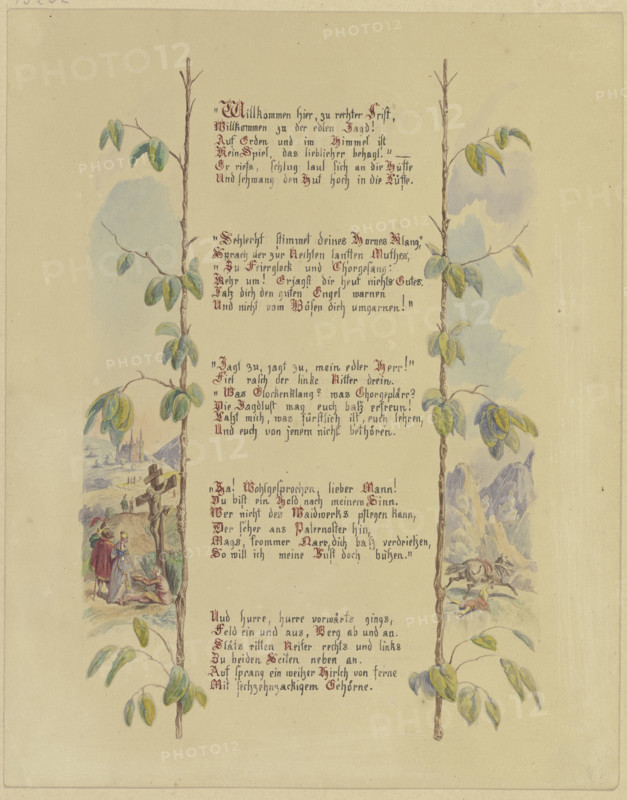 "Willkommen hier, zu rechter Frist,
Willkommen zu der edlen Jagd!
Auf Erden und im Himmel ist
Kein Spiel, das lieblicher behagt." —
Er riefs, schlug laut sich an die Hüfte
Und schwang den Hut hoch in die Lüfte.
"Schlecht stimmet deines Hornes Klang,"
Sprach der zur Rechten sanften Muthes,
"Zu Feierglock und Chorgesang:
Kehr um! Erjagst dir heut nichts Gutes.
Laß dich den guten Engel warnen
Und nicht vom Bösen dich umgarnen!"
"Jagt zu, jagt zu, mein edler Herr!"
Fiel rasch der linke Ritter drein.
"Was Glockenklang? was Chorgeplärr?
Die Jagdlust mag euch baß erfreun!
Laßt mich, was fürstlich ist, euch lehren,
Und euch von jenem nicht bethören.
"Ha! Wohlgesprochen, lieber Mann!
Du bist ein Held nach meinem Sinn.
Wer nicht des Waidwerks pflegen kann,
Der scher ans Paternoster hin,
Mags, frommer Narr, dich baß verdrießen,
So will ich meine Lust doch büßen."
Und hurre, hurre vorwärts gings,
Feld ein und aus, Berg ab und an.
Stäts ritten Reiter rechts und links
Zu beiden Seiten neben an.
Auf sprang ein weißer Hirsch von ferne
Mit sechzehnzackigem Gehörne.
PHOTO12